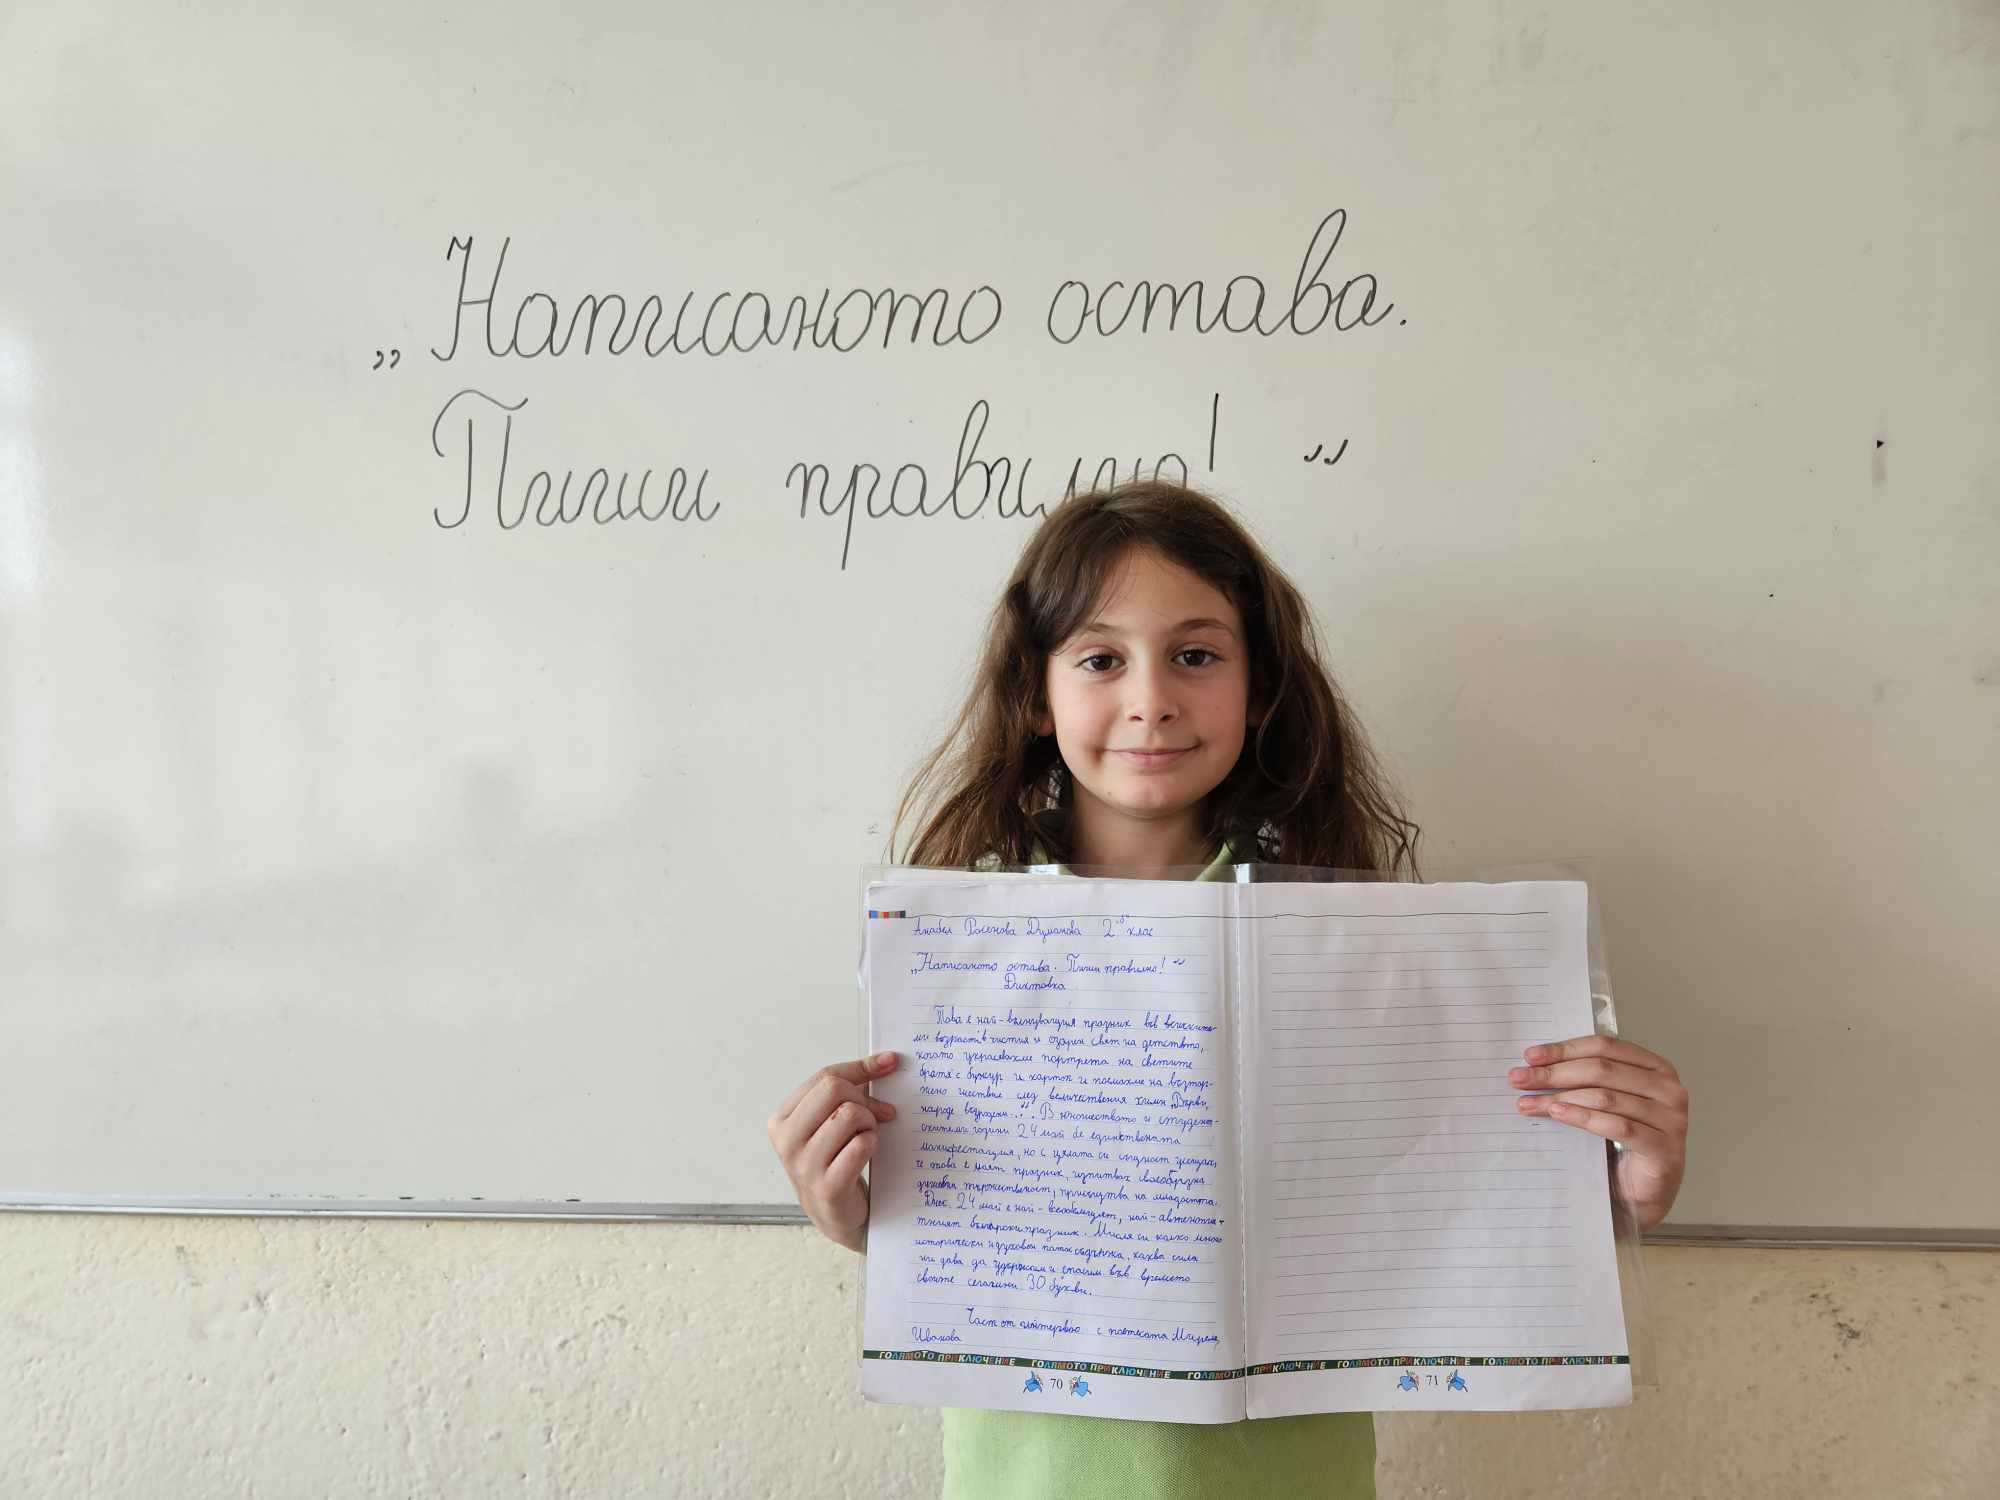 „Написаното остава.
Пиши правилно! “
Анабел Росенова Думанова 2 "б" клас
„Написаното остава. Пиши правилно! “
Диктовка
Това е най-вълнуващия празник във всичките
ми възрасти в чистия и озарен свят на детството,
когато украсявахме портрета на светите
братя с божур и картон и поемахме на възтор-
жено шествие след величествения химн „Върви,
народе възродени...“. В юношеството и студент-
ските ми години 24 май бе единствената
манифестация, но с цялата си същност усещах,
че това е моят празник, изпитвах своеобразна
душевна тържественост, присъствия на младостта.
Днес 24 май е най-всеобемащият, най-автентич-
тният български празник. Мисля си колко много
исторически и духовен патос съдържа, каква сила
ни дава да удържим и спасим във времето
своите сегашни 30 букви.
Част от интервю с поетесата Мирела
Иванова
ГОЛЯМОТО ПРИКЛЮЧЕНИЕ ГОЛЯМОТО ПРИКЛЮЧЕНИЕ ГОЛЯМОТО ПРИКЛЮЧЕНИЕ ГОЛЯМОТО ПРИКЛЮЧЕНИЕ ГОЛЯМОТО ПРИКЛЮЧЕНИЕ
70 71